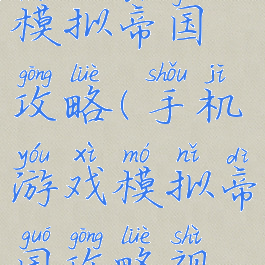 模拟帝国
gōng lüè shǒu jī
攻略(手机
yóu xì mó nǐ dì
游戏模拟帝
guó gōng lüè shì
国攻略视